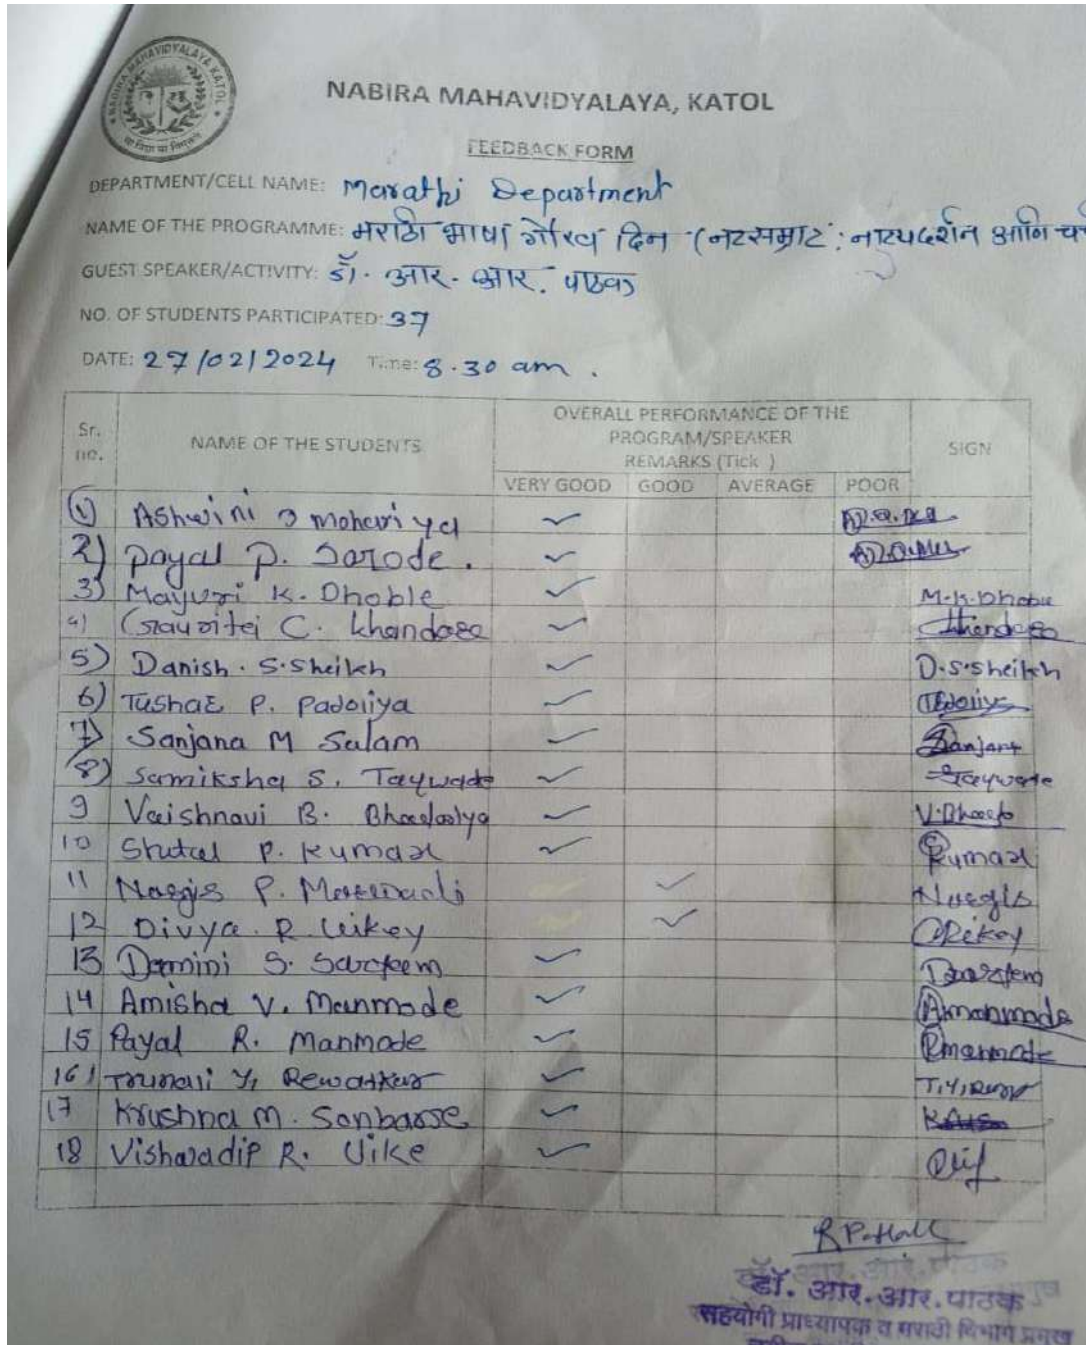 NABIRA MAHAVIDYALAYA KATOL
NABIRA MAHAVIDYALAYA, KATOL
FEEDBACK FORM
DEPARTMENT/CELL NAME: Marathi Department
NAME OF THE PROGRAMME: मराठी भाषा गौरव दिन (नटसम्राट : नाट्यदर्शन आणि
GUEST SPEAKER/ACTIVITY: डॉ. आर. आर. पाठक
NO. OF STUDENTS PARTICIPATED: 37
DATE: 27/02/2024 Time: 8.30 am.
Sr. no. NAME OF THE STUDENTS OVERALL PERFORMANCE OF THE PROGRAM/SPEAKER REMARKS (Tick ) SIGN
VERY GOOD GOOD AVERAGE POOR
1) Ashwini ✓
2) Payal P. Sarode. ✓
3) Mayuri K. Dhoble ✓ M.K.Dhoble
4) C. Khandase ✓
5) Danish. S. Sheikh ✓ D.S.Sheikh
6) Tushar P. Padoliya ✓
7) Sanjana M Salam ✓ Sanjana
8) Samiksha S. Taywade ✓ Taywade
9 Vaishnavi B. ✓
10 P. Kumar ✓ Kumar
11 P. ✓
12 Divya. R Uikey ✓
13 Damini S. ✓
14 Amisha V. Manmode ✓ Amanmode
15 Payal R. Manmode ✓ Pmanmode
16) Y, Rewatkar ✓
17 Krushna M. Sonbarse ✓
18 R. Uike ✓
डॉ. आर. आर. पाठक
सहयोगी प्राध्यापक व मराठी विभाग प्रमुख